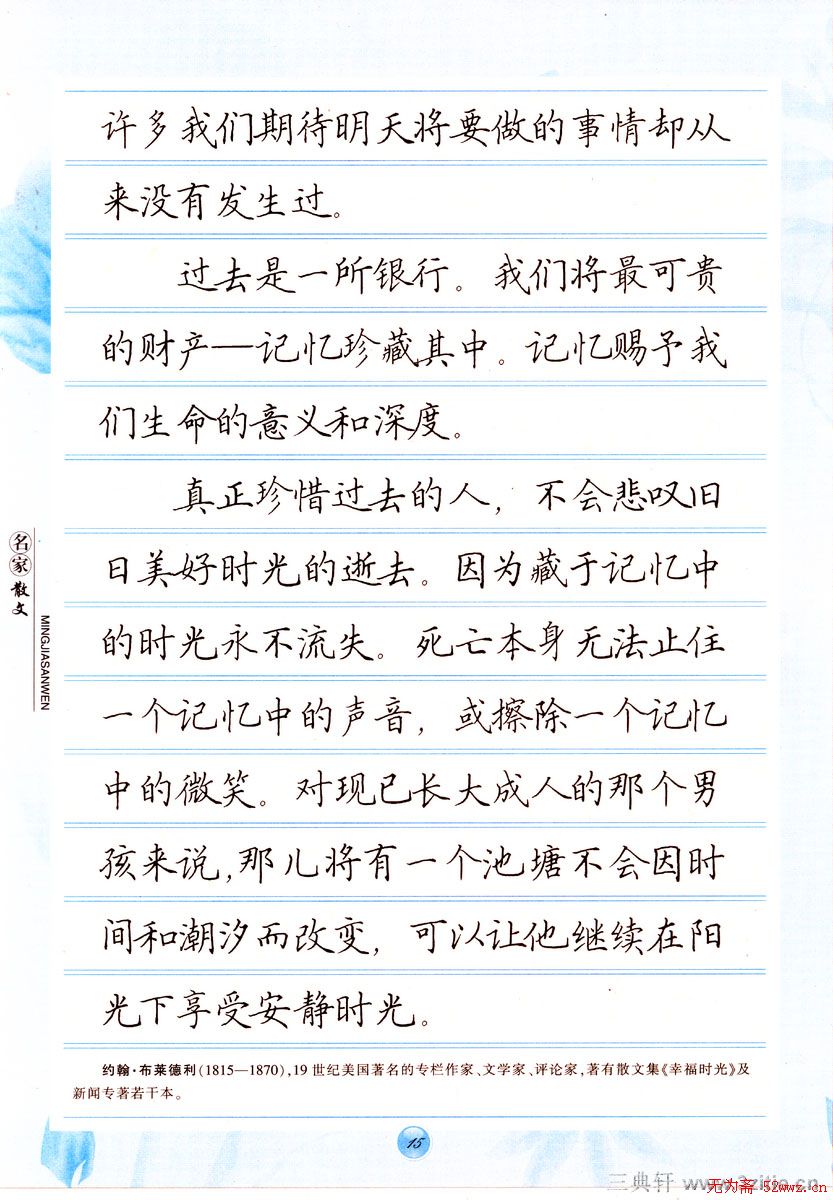 许多我们期待明天将要做的事情却从
来没有发生过。
过去是一所银行。我们将最可贵
的财产——记忆珍藏其中。记忆赐予我
们生命的意义和深度。
真正珍惜过去的人，不会悲叹旧
日美好时光的逝去。因为藏于记忆中
的时光永不流失。死亡本身无法止住
一个记忆中的声音，或擦除一个记忆
中的微笑。对现已长大成人的那个男
孩来说,那儿将有一个池塘不会因时
间和潮汐而改变，可以让他继续在阳
光下享受安静时光。
名家散文
MINGJIASANWEN
约翰·布莱德利(1815—1870),19世纪美国著名的专栏作家、文学家、评论家,著有散文集《幸福时光》及
新闻专著若干本。
15
三典轩
无为斋 52wwz.cn